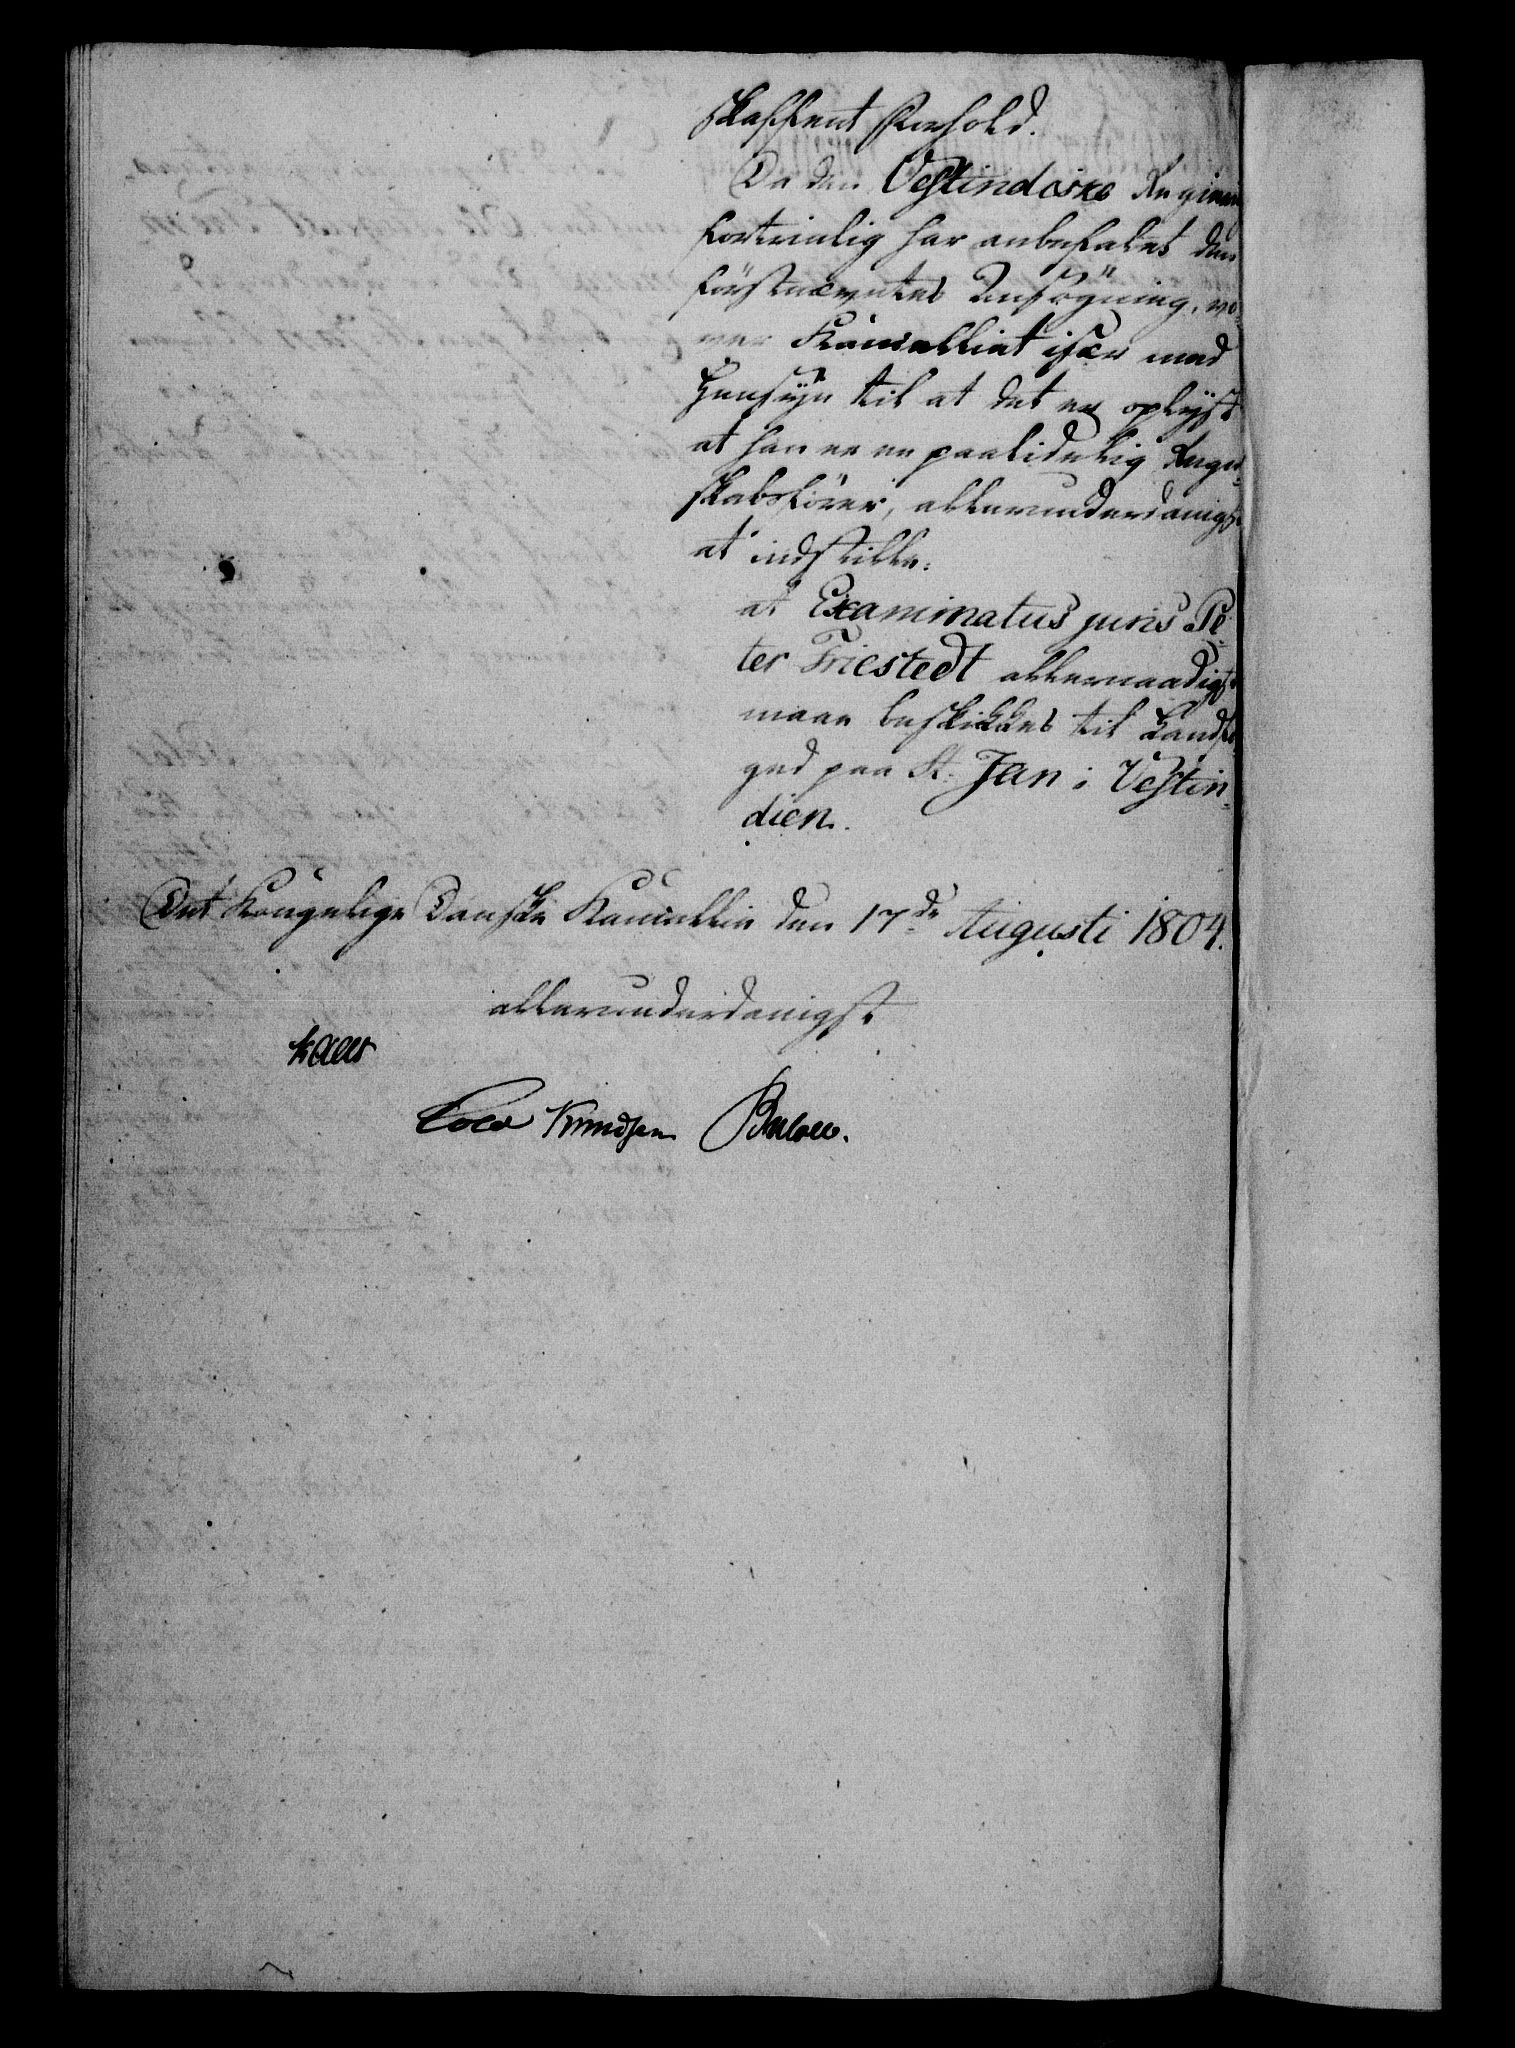 skaffent Forhold.
Da den Vestindiske Regiering
fortrinlig har anbefalet den
förstnævntes Ansögning, vo-
ver Kancelliet især med
Hensÿn til at det er oplÿst
at han er en paalidelig Regn-
skabsförer, allerunderdanigst
at indstille:
at Examinatus juris Pe-
ter Friestedt allernaadigst
maae beskikkes til Landfo-
ged paa St. Jan i Vestin-
dien.
Det Kongelige Danske Kancellie den 17de Augusti 1804.
allerunderdanigst
Kaas
Cold Knudsen Bülow.